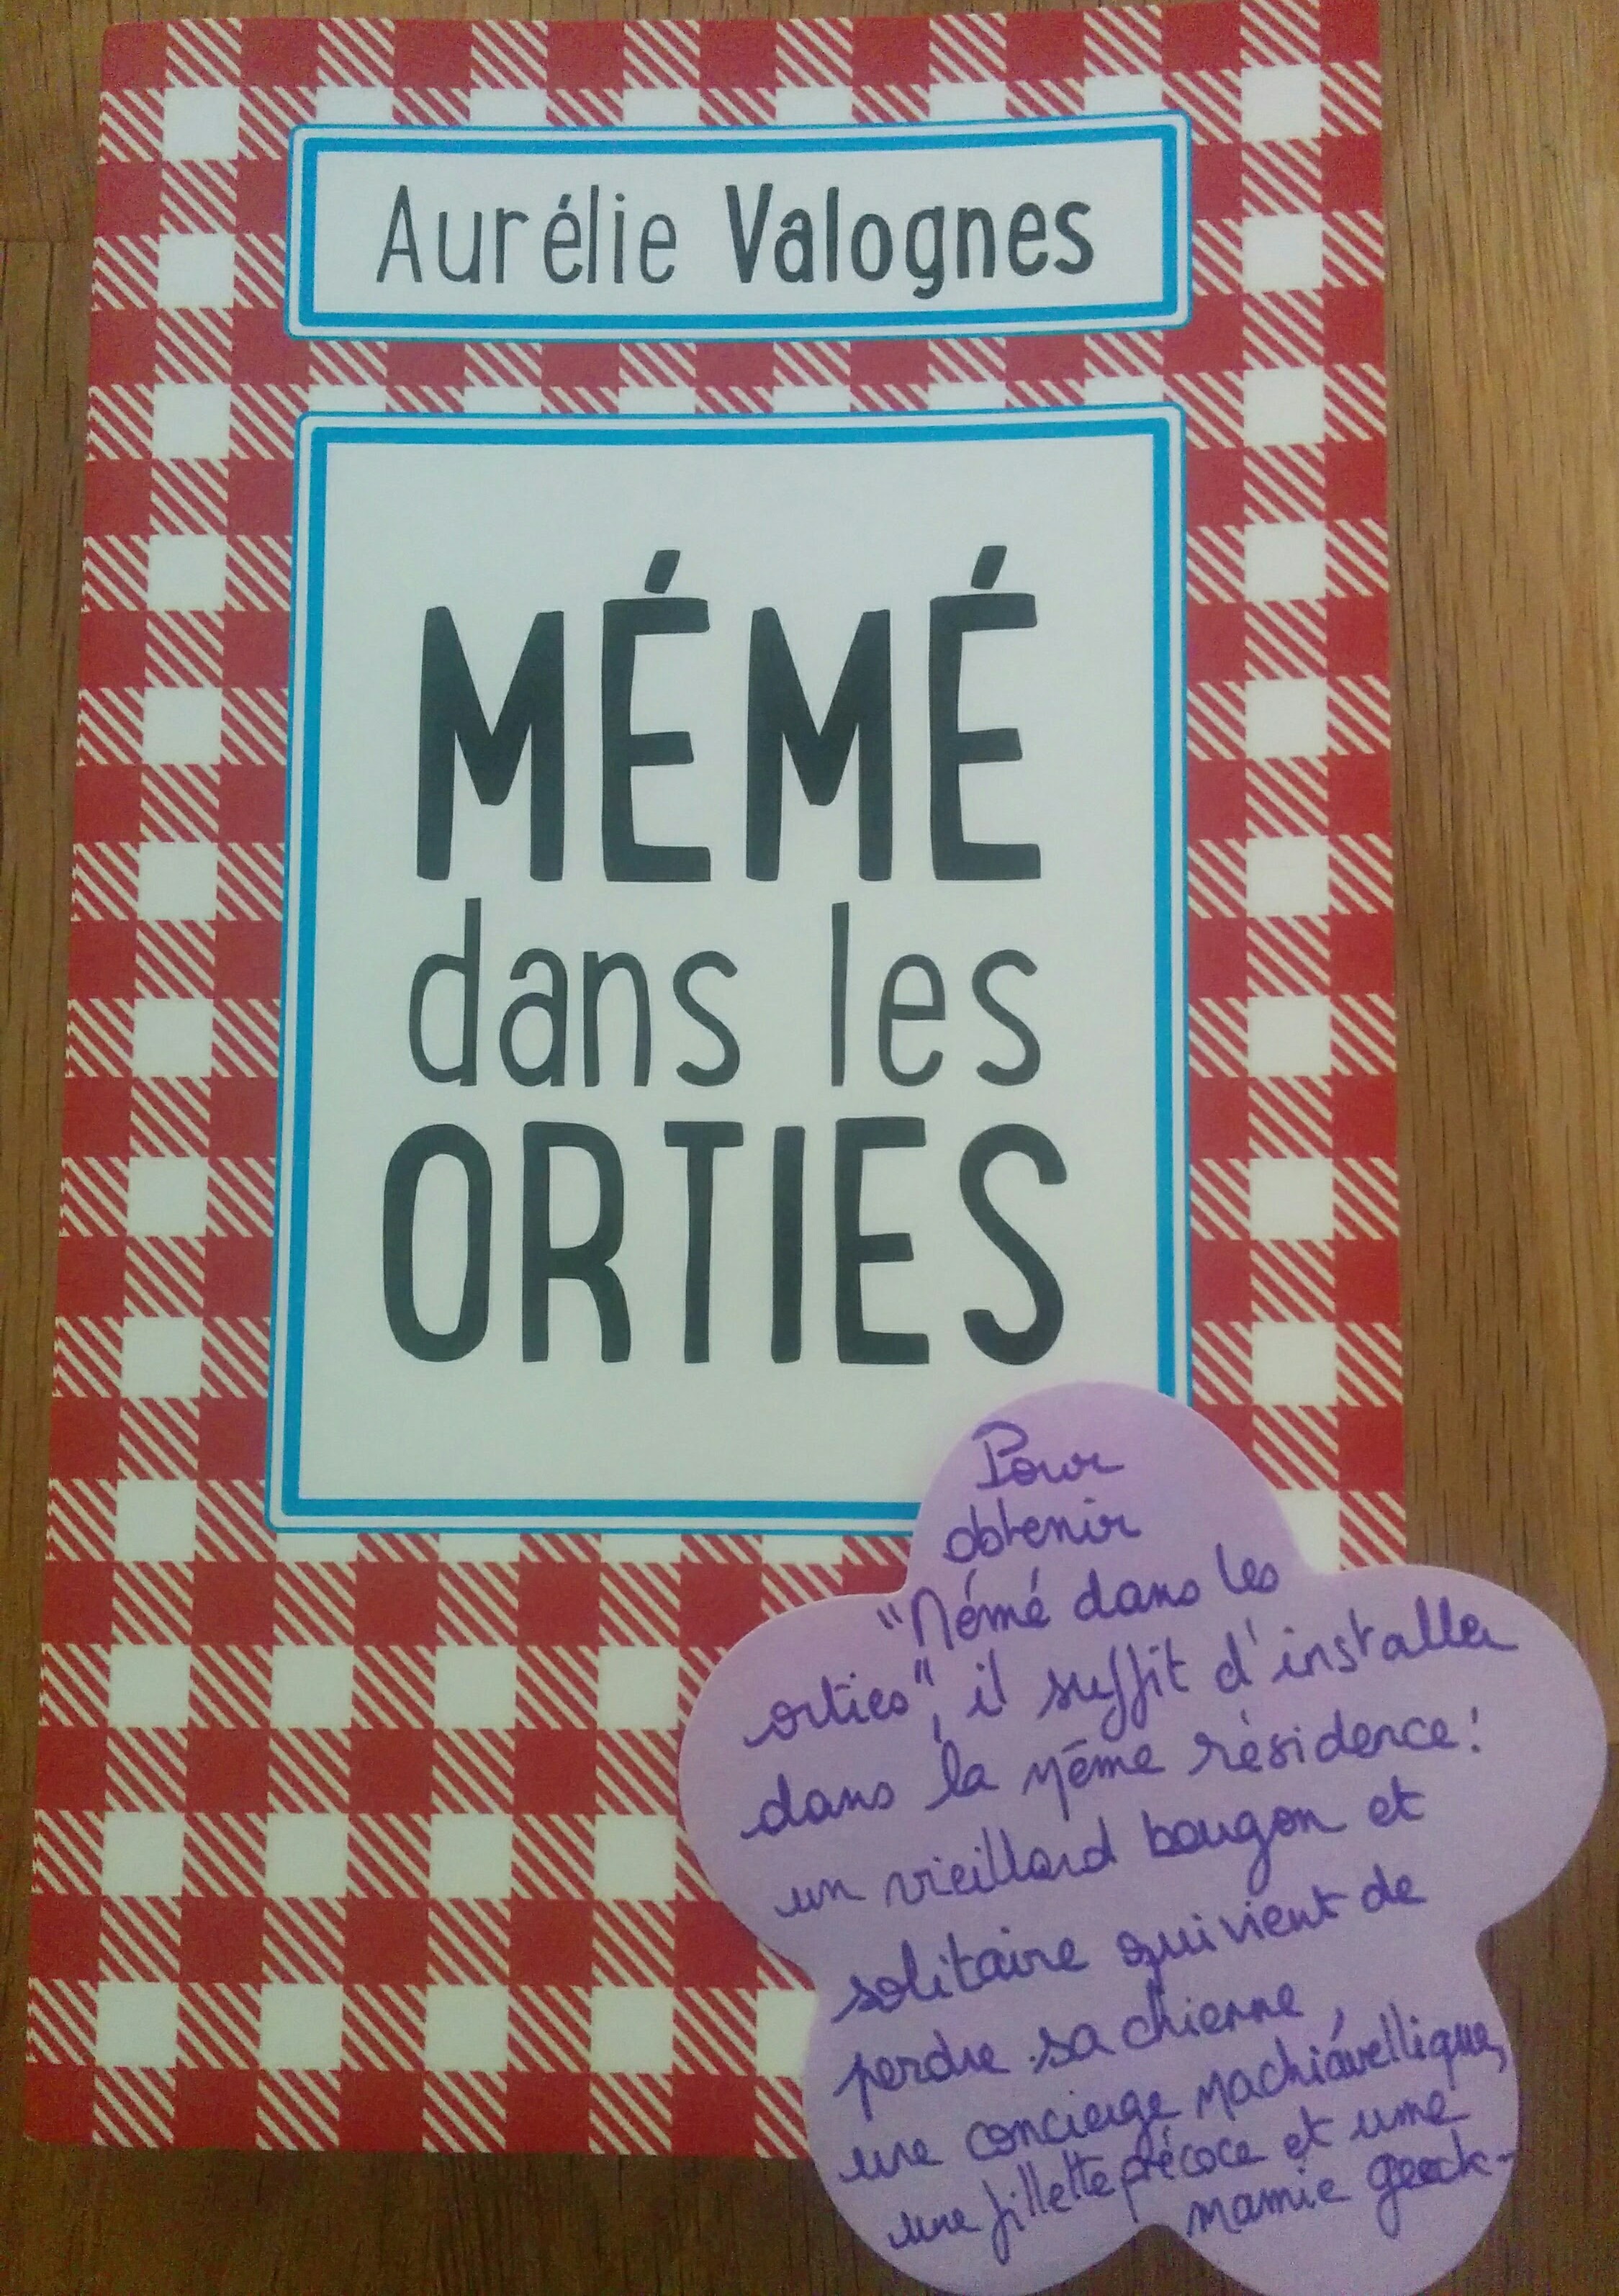 Aurélie Valognes
MÉMÉ
dans les
ORTIES
Pour
obtenir
"Mémé dans les
orties", il suffit d'installer
dans la même résidence:
un vieillard bougon et
solitaire qui vient de
perdre sa chienne,
une concierge machiavellique,
une fillette précoce et une
mamie geek.